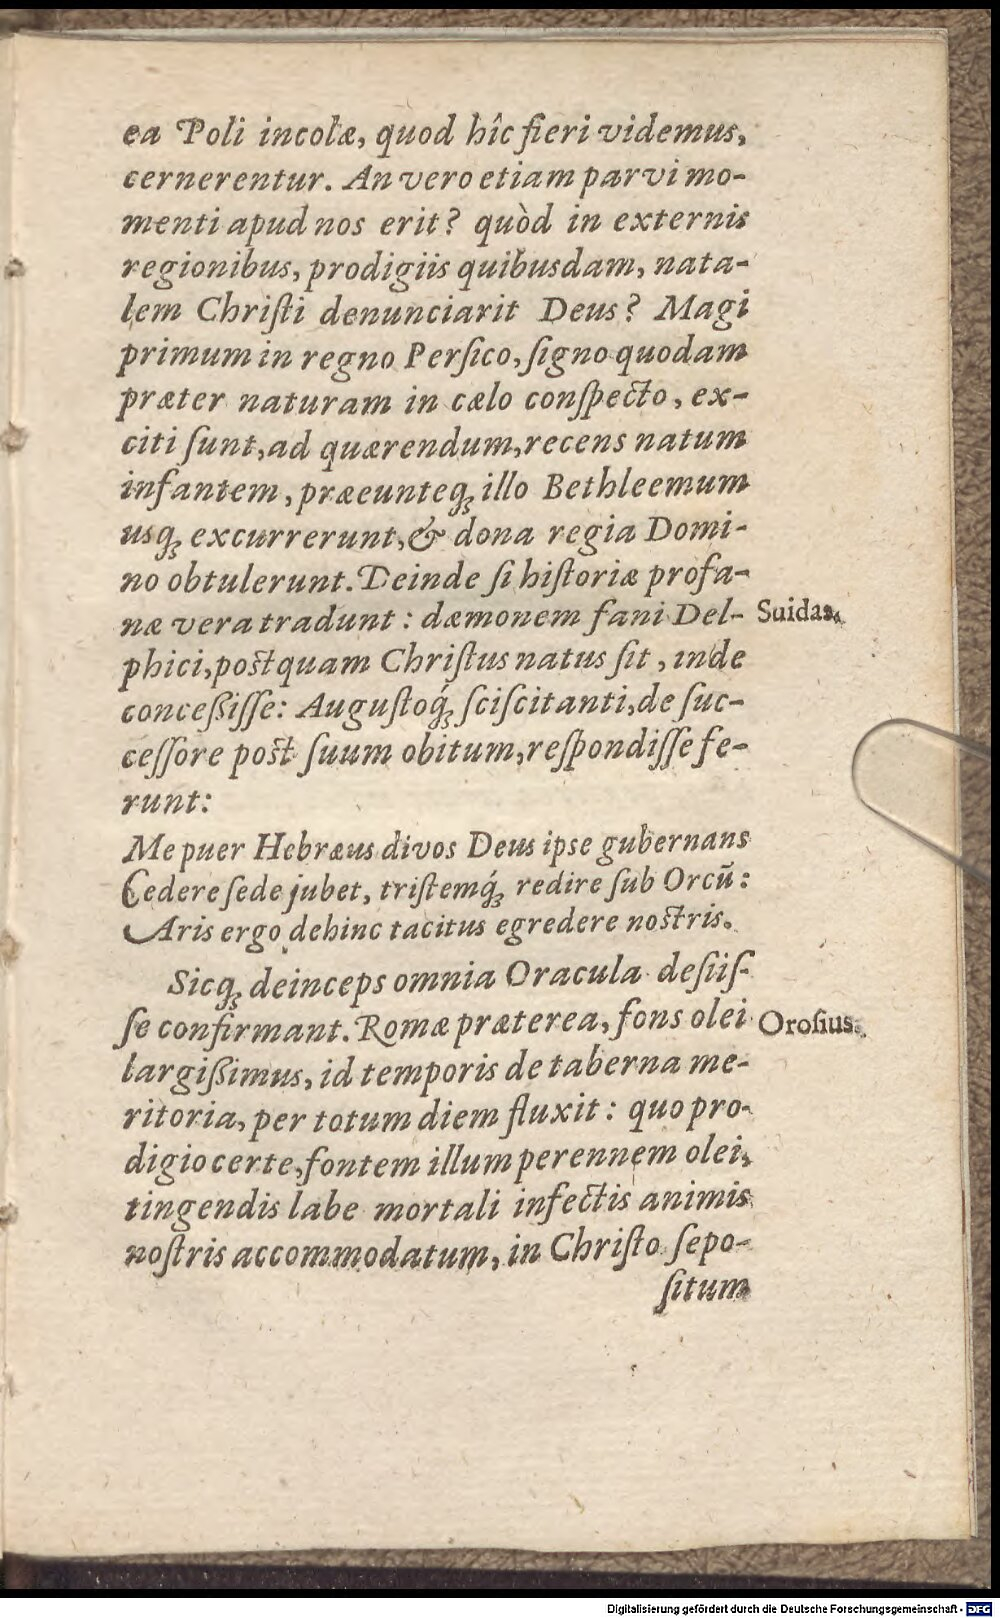 ea Poli incolæ, quod hîc fieri videmus,
cernerentur. An vero etiam parvi mo-
menti apud nos erit? quòd in externis
regionibus, prodigiis quibusdam, nata-
lem Chriſti denunciarit Deus? Magi
primum in regno Perſico, ſigno quodam
præter naturam in cælo conſpecto, ex-
citi ſunt, ad quærendum, recens natum
infantem, præeunteq́ꝫ illo Bethleemum
usqꝫ excurrerunt, & dona regia Domi-
no obtulerunt. Deinde ſi hiſtoriæ profa-
næ vera tradunt: dæmonem fani Del-
Suidas.
phici, poſtquam Chriſtus natus ſit, inde
conceßiſſe: Auguſtoq́ꝫ ſciſcitanti, de ſuc-
ceſſore poſt ſuum obitum, reſpondiſſe fe-
runt:
Me puer Hebræus divos Deus ipse gubernans
Cedere ſede jubet, triſtemq́ꝫ redire ſub Orcū:
Aris ergo dehinc tacitus egredere noſtris.
Sicqꝫ deinceps omnia Oracula deſiiſ-
ſe confirmant. Romæ præterea, fons olei
Oroſius.
largißimus, id temporis de taberna me-
ritoria, per totum diem fluxit: quo pro-
digio certe, fontem illum perennem olei,
tingendis labe mortali infectis animis
noſtris accommodatum, in Chriſto ſepo-
ſitum
Digitalisierung gefördert durch die Deutsche Forschungsgemeinschaft - DFG